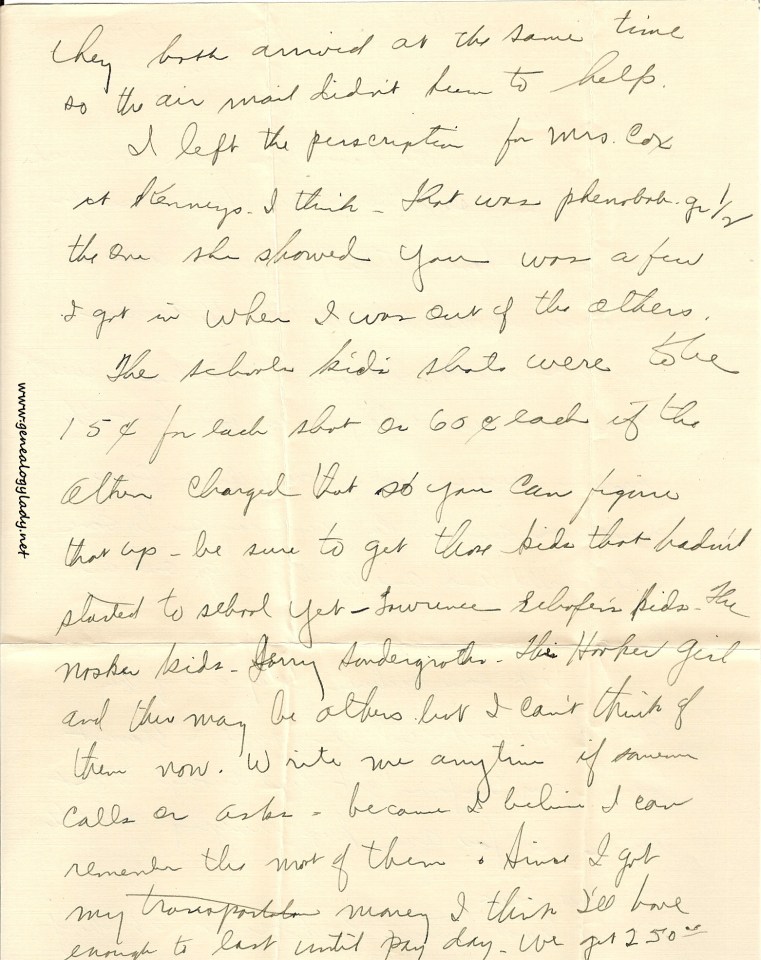 they both arrived at the same time
so the air mail didn't seem to help.
I left the perscription for Mrs. Cox
at Kenneys. I think - that was phenobarb. gr 1/2
the one she showed you was a few
I got in when I was out of the others.
The schools kids shots were to be
15¢ for each shot or 60¢ each if the
others charged that so you can figure
that up - be sure to get those kids that hadn't
started to school yet - Lawrence Schafer's kids - The
Nosker kids - Jerry Sondergroths - The Hooker girl
and ther may be others but I can't think of
them now. Write me anytime if someone
calls or asks - because I believe I can
remember the most of them. Since I got
my transportation money I think I'll have
enough to last until pay day - We get 250.00
www.genealogylady.net